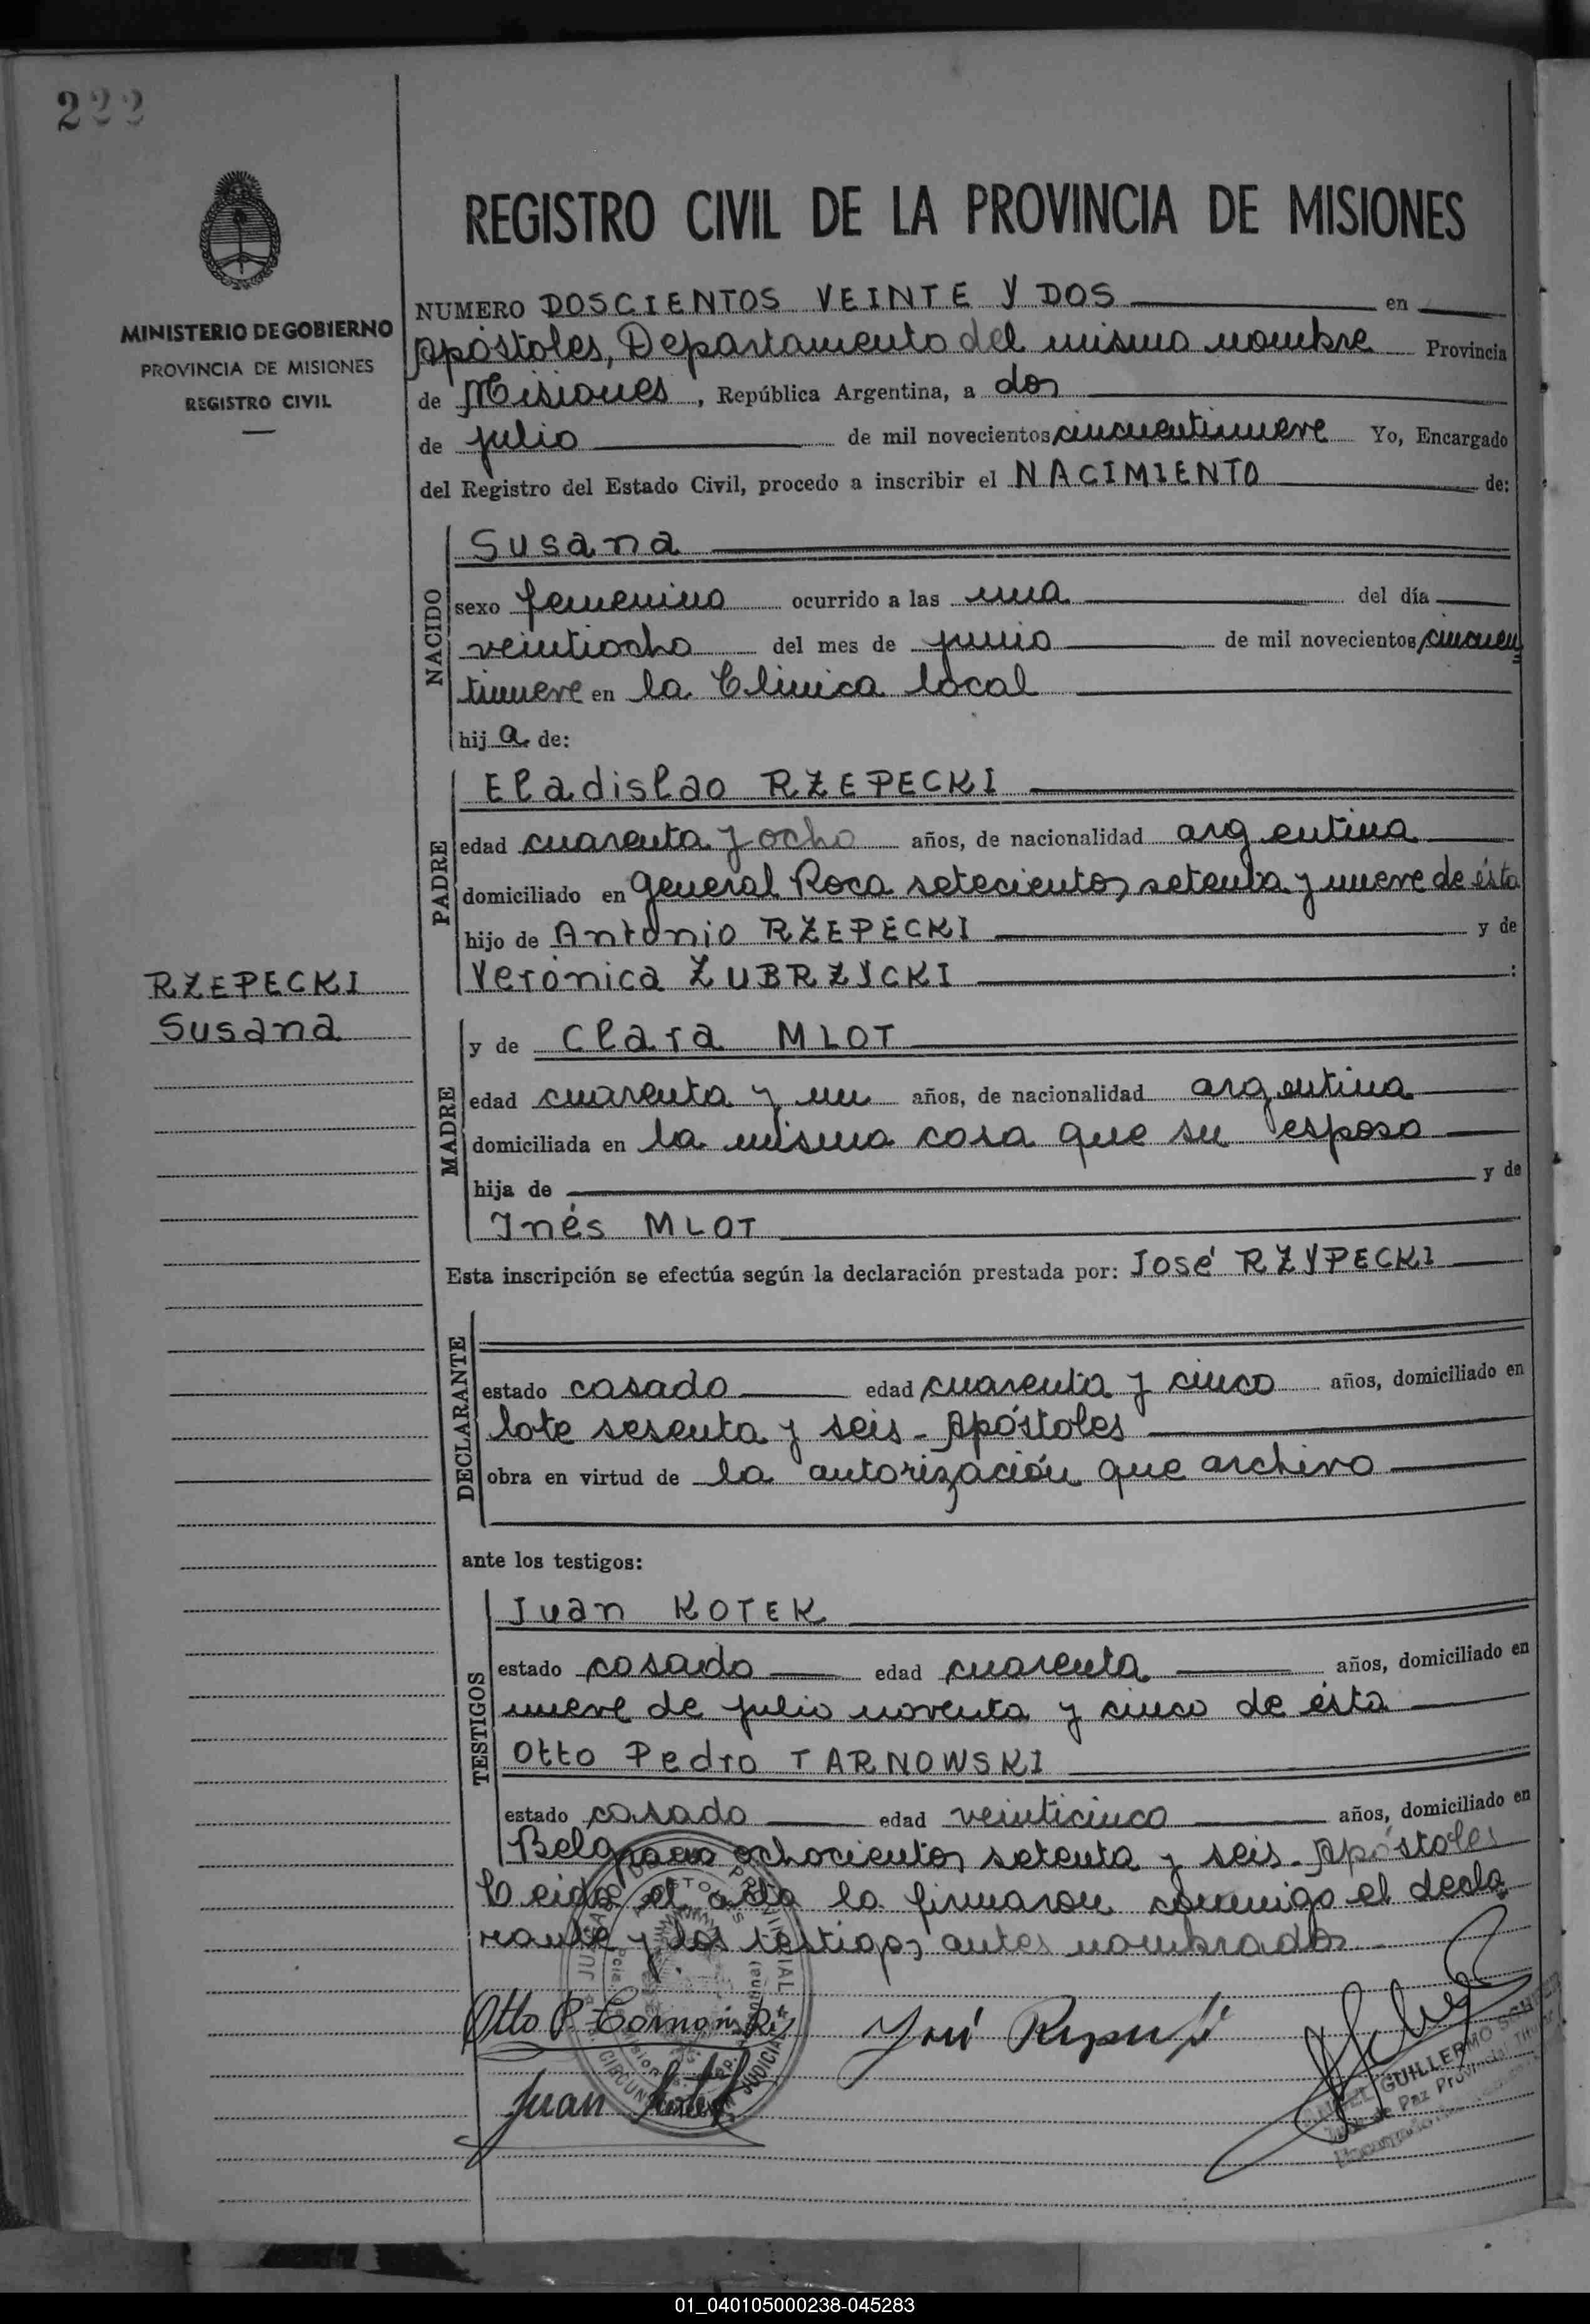 222
MINISTERIO DE GOBIERNO
PROVINCIA DE MISIONES
REGISTRO CIVIL
REGISTRO CIVIL DE LA PROVINCIA DE MISIONES
NUMERO DOSCIENTOS VEINTE Y DOS en
Apóstoles, Departamento del mismo nombre Provincia
de Misiones, República Argentina, a dos
de julio de mil novecientos cincuentinueve Yo, Encargado
del Registro del Estado Civil, procedo a inscribir el NACIMIENTO de:
NACIDO
Susana
sexo femenino ocurrido a las una del día
veintiocho del mes de junio de mil novecientos cincuen
tinueve en la Clinica local
hija de:
PADRE
Eladislao RZEPECKI
edad cuarenta y ocho años, de nacionalidad argentina
domiciliado en General Roca setecientos setenta y nueve de ésta
hijo de Antonio RZEPECKI y de
Verónica ZUBRZYCKI :
RZEPECKI
Susana
MADRE
y de Clara MLOT
edad cuarenta y un años, de nacionalidad argentina
domiciliada en la misma casa que su esposo
hija de y de
Inés MLOT
Esta inscripción se efectúa según la declaración prestada por: José RZYPECKI
DECLARANTE
estado casado edad cuarenta y cinco años, domiciliado en
lote sesenta y seis - Apóstoles
obra en virtud de la autorización que archivo
ante los testigos:
TESTIGOS
Juan KOTEK
estado casado edad cuarenta años, domiciliado en
nueve de julio noventa y cinco de ésta
Otto Pedro TARNOWSKI
estado casado edad veinticinco años, domiciliado en
Belgrano ochocientos setenta y seis - Apóstoles
Leida el acta la firmaron conmigo el decla
rante y los testigos antes nombrados
Otto P. Tarnowski
José
Juan Kotek
GUILLERMO
Juez de Paz Provincial Titular
01_040105000238-045283